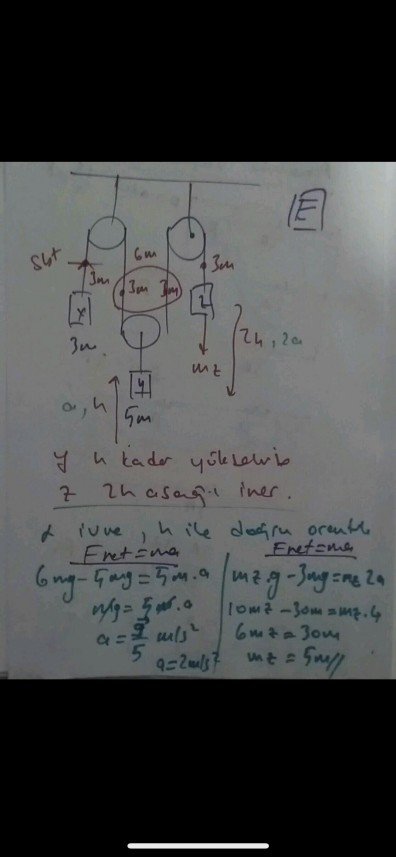 E
Sbt
6m
3m
3m
3m
3m
x
z
3m
mz
2h, 2a
y
a, h
5m
y h kadar yükselirse
z 2h aşağı iner.
ivme, h ile doğru orantılı
Fnet=ma
6mg-5mg=5m.a
mg=5m.a
a=g/5 m/s²
a=2m/s²
Fnet=ma
mz.g-3mg=mz 2a
10mz-30m=mz.4
6mz=30m
mz=5m//